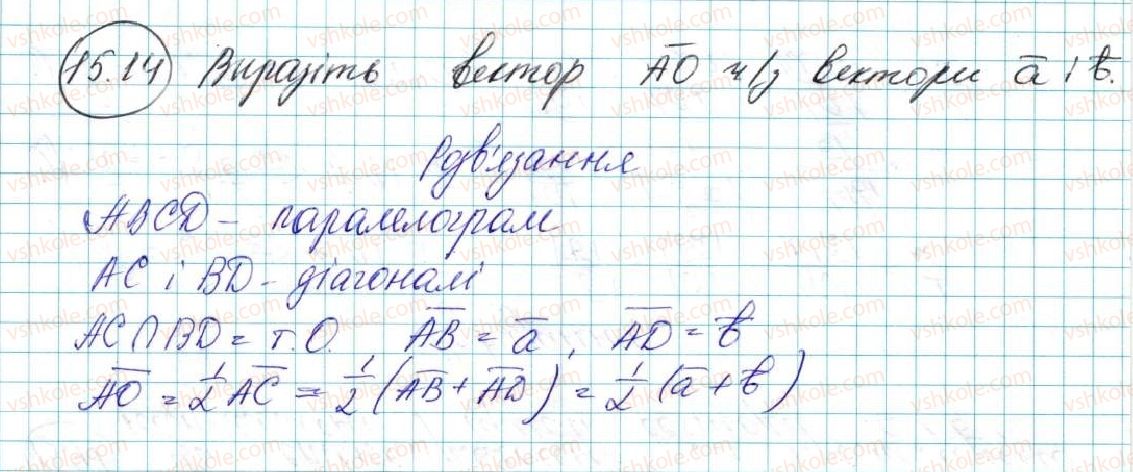 15.14 Виразіть вектор A̅O̅ ч/з вектори a̅ і b̅.
Розв'язання
ABCD - паралелограм
AC і BD - діагоналі
AC∩BD = т.O. A̅B̅ = a̅, A̅D̅ = b̅
A̅O̅ = 1/2 A̅C̅ = 1/2 (A̅B̅ + A̅D̅) = 1/2 (a̅ + b̅)